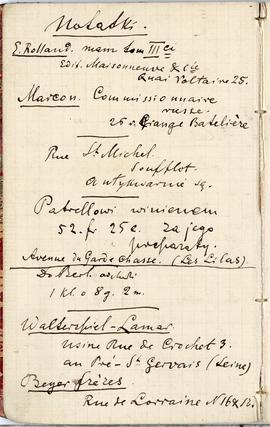 Notatki.
E. Rolland. mam tom III ci
Edit. Maisonneuve & Cie
Quai Voltaire 25.
Marcon. Commissionnaire
russe.
25 r. Grange Batelière
Rue St. Michel.
Soufflot
antykwarnie są.
Patrellowi winienem
52. fr 25 c. za jego
preparaty.
Avenue du Garde Chasse. (Les Lilas)
Do Berl. odchodzi
1 kl. o 8 g. 2 m.
Walterspiel-Lamar
usine Rue de Crochet 3.
au Pré-St Gervais (Seine)
Beyer frères.
Rue de Lorraine N 16 & 12.